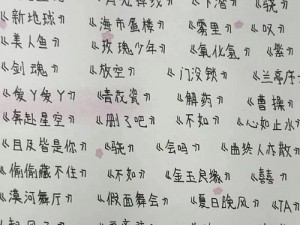 《新地球》 《海市蜃楼》 《雾里》 《叹》
《美人鱼》 《玫瑰少年》 《氧化氢》 《紫》
《剑魂》 《放空》 《门没锁》 《兰亭序》
《俊丫俊丫》 《青花瓷》 《解药》 《曹操》
《奔赴星空》 《删了吧》 《不如》 《心如止水》
《目及皆是你》 《骁》 《会吗》 《曲终人亦散》
《偷偷藏不住》 《不如》 《金玉良缘》 《囍》
《漠河舞厅》 《假面舞会》 《夏日晚风》 《TA》